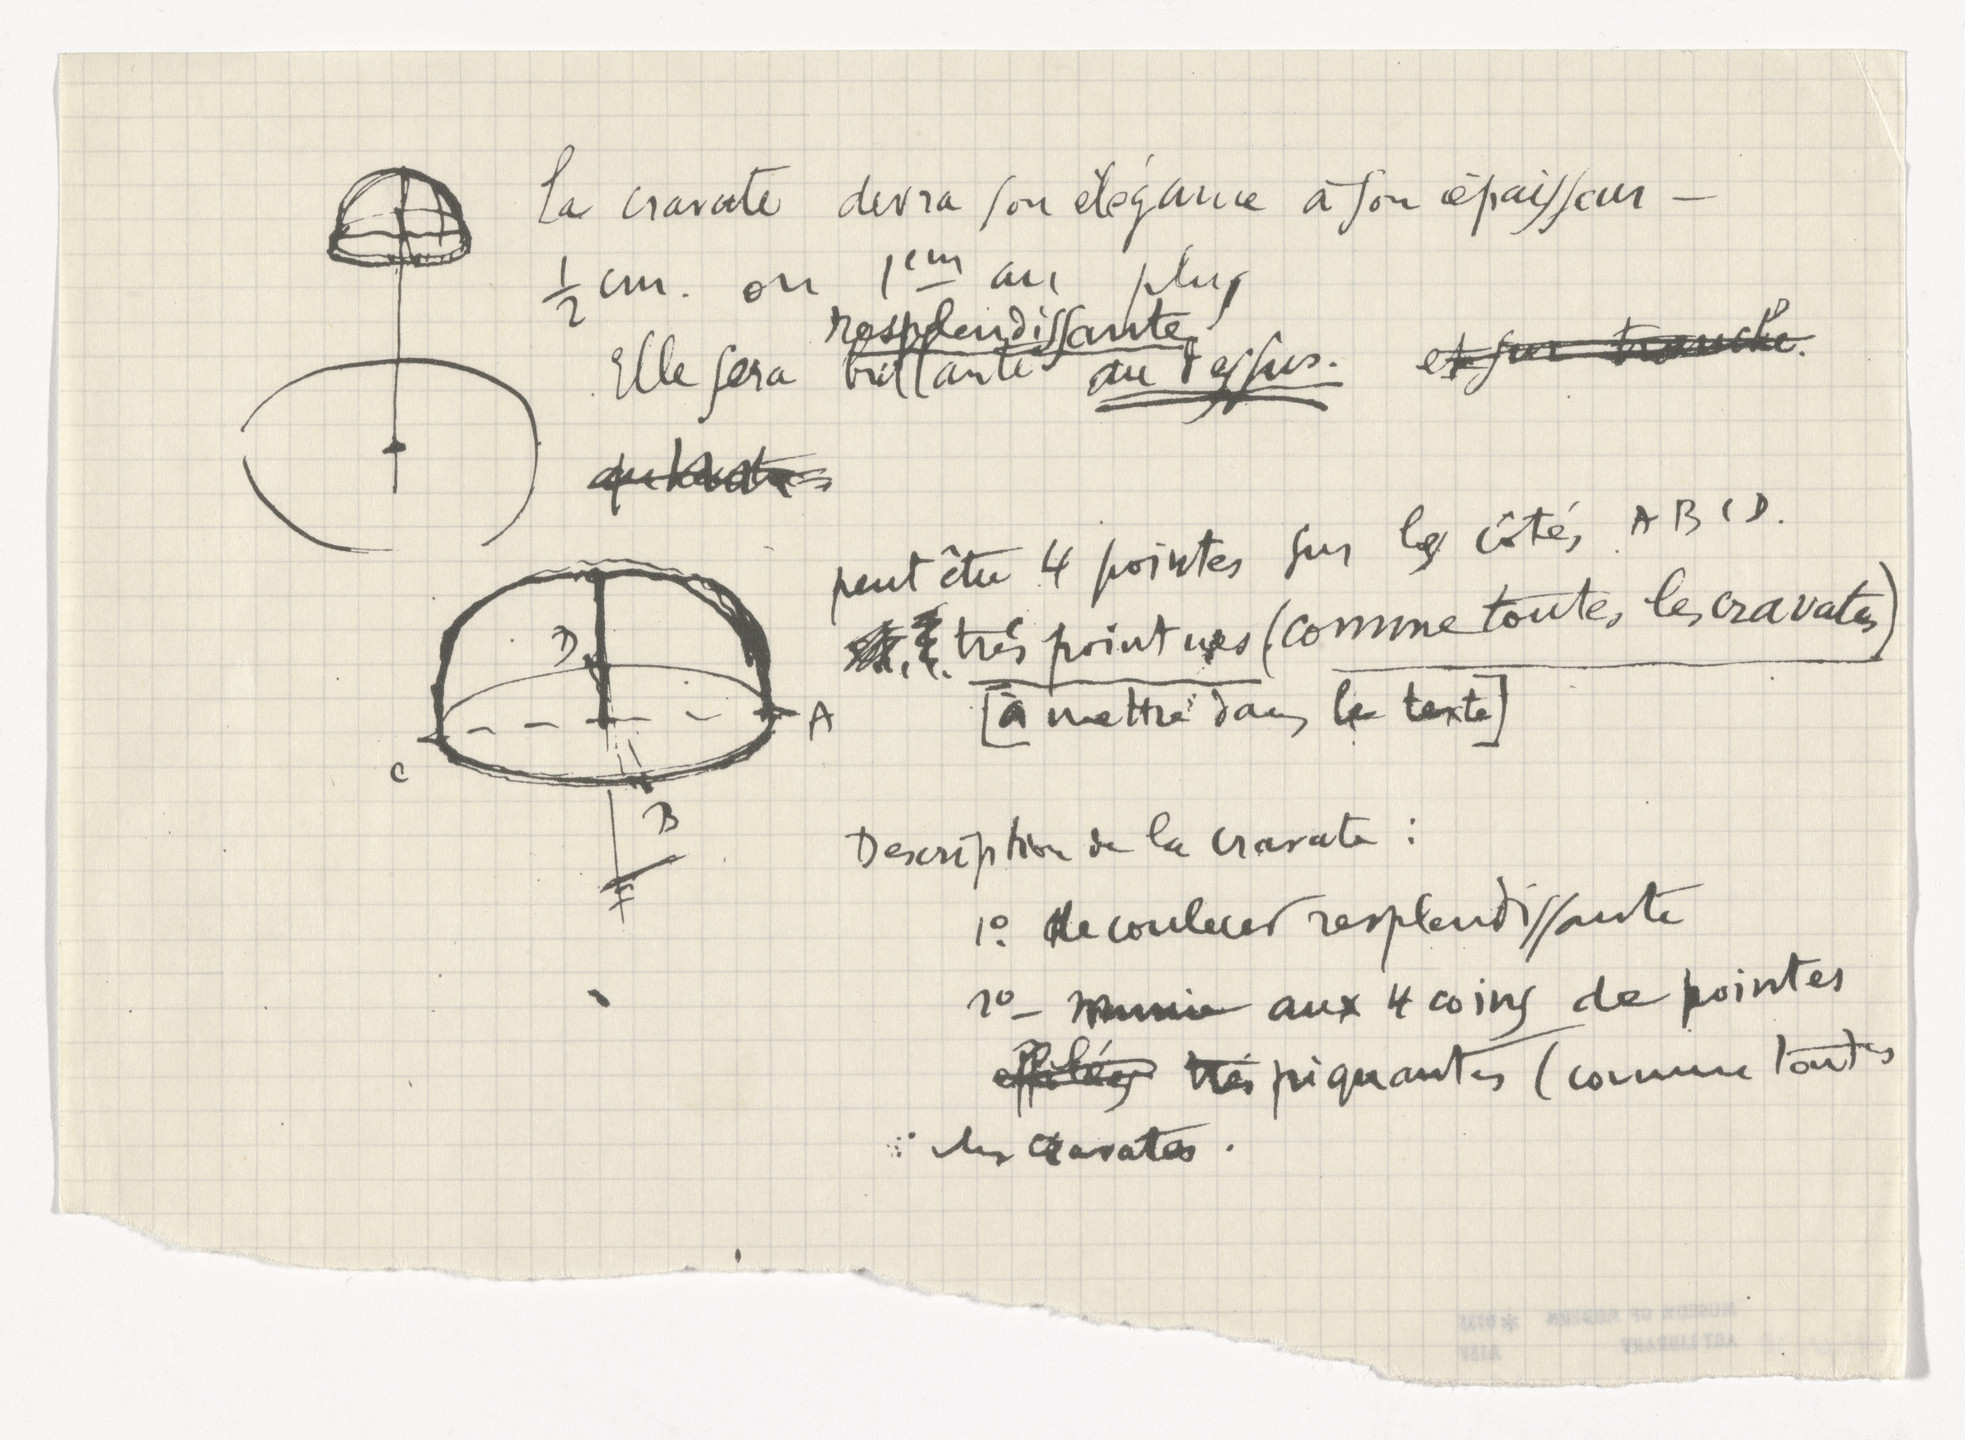 La cravate devra son élégance à son épaisseur —
½ cm. ou 1 cm au plus
resplendissante
Elle sera brillante au dessus. et sur tranche.
peut être 4 pointes sur les côtés A B C D.
très pointues (comme toutes les cravates)
[à mettre dans le texte]
D
A
C
B
F
Description de la cravate :
1º. de couleur resplendissante
2º — munie aux 4 coins de pointes
effilées très piquantes (comme toutes
les cravates.
MUSEUM OF MODERN
ART LIBRARY